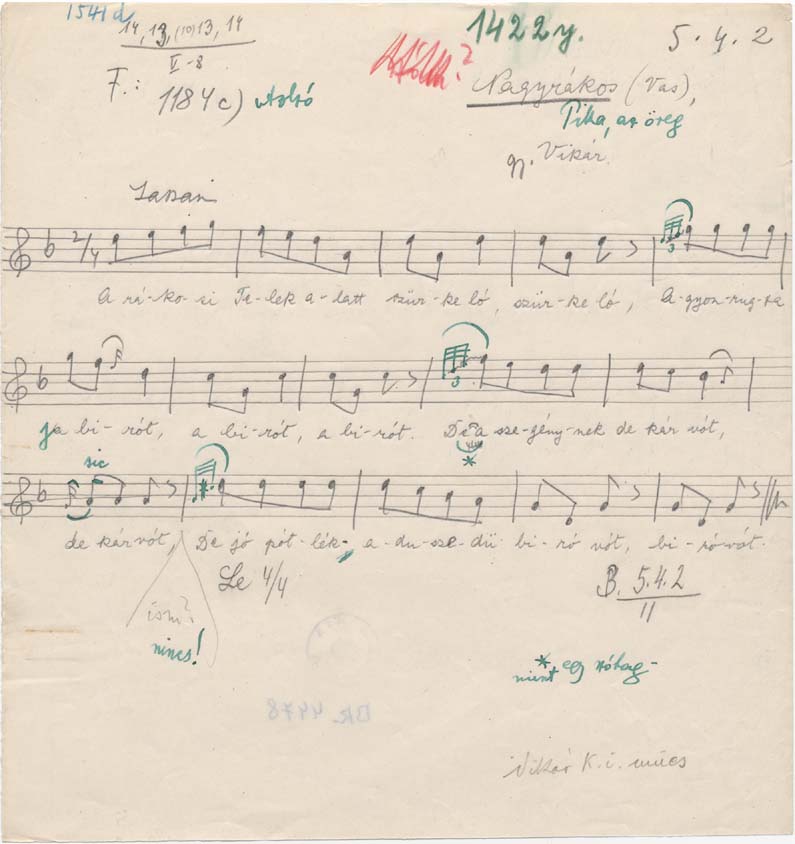 1541d
14, 13, (10) 13, 14
V-8
1422y.
5. 4. 2
F.: 1184c) utolsó
Nagyrákos (Vas),
Pika, az öreg
gy. Vikár
Lassan
2/4
A rá-ko-si Te-lek a-latt szür-ke ló, szür-ke ló, A-gyon-rug-ta
3
ja bi-rót, a bi-rót, a bi-rót. De a sze-gény-nek de kár vót,
3
*
sic
de kár vót, De jó pót-lék, a-du-sze-dü bi-ró vót, bi-ró vót.
*
Le 4/4
B. 5.4.2
II
ism?
nincs!
* egy szótag-
nient
BR 4478
Vikár K. i. nincs